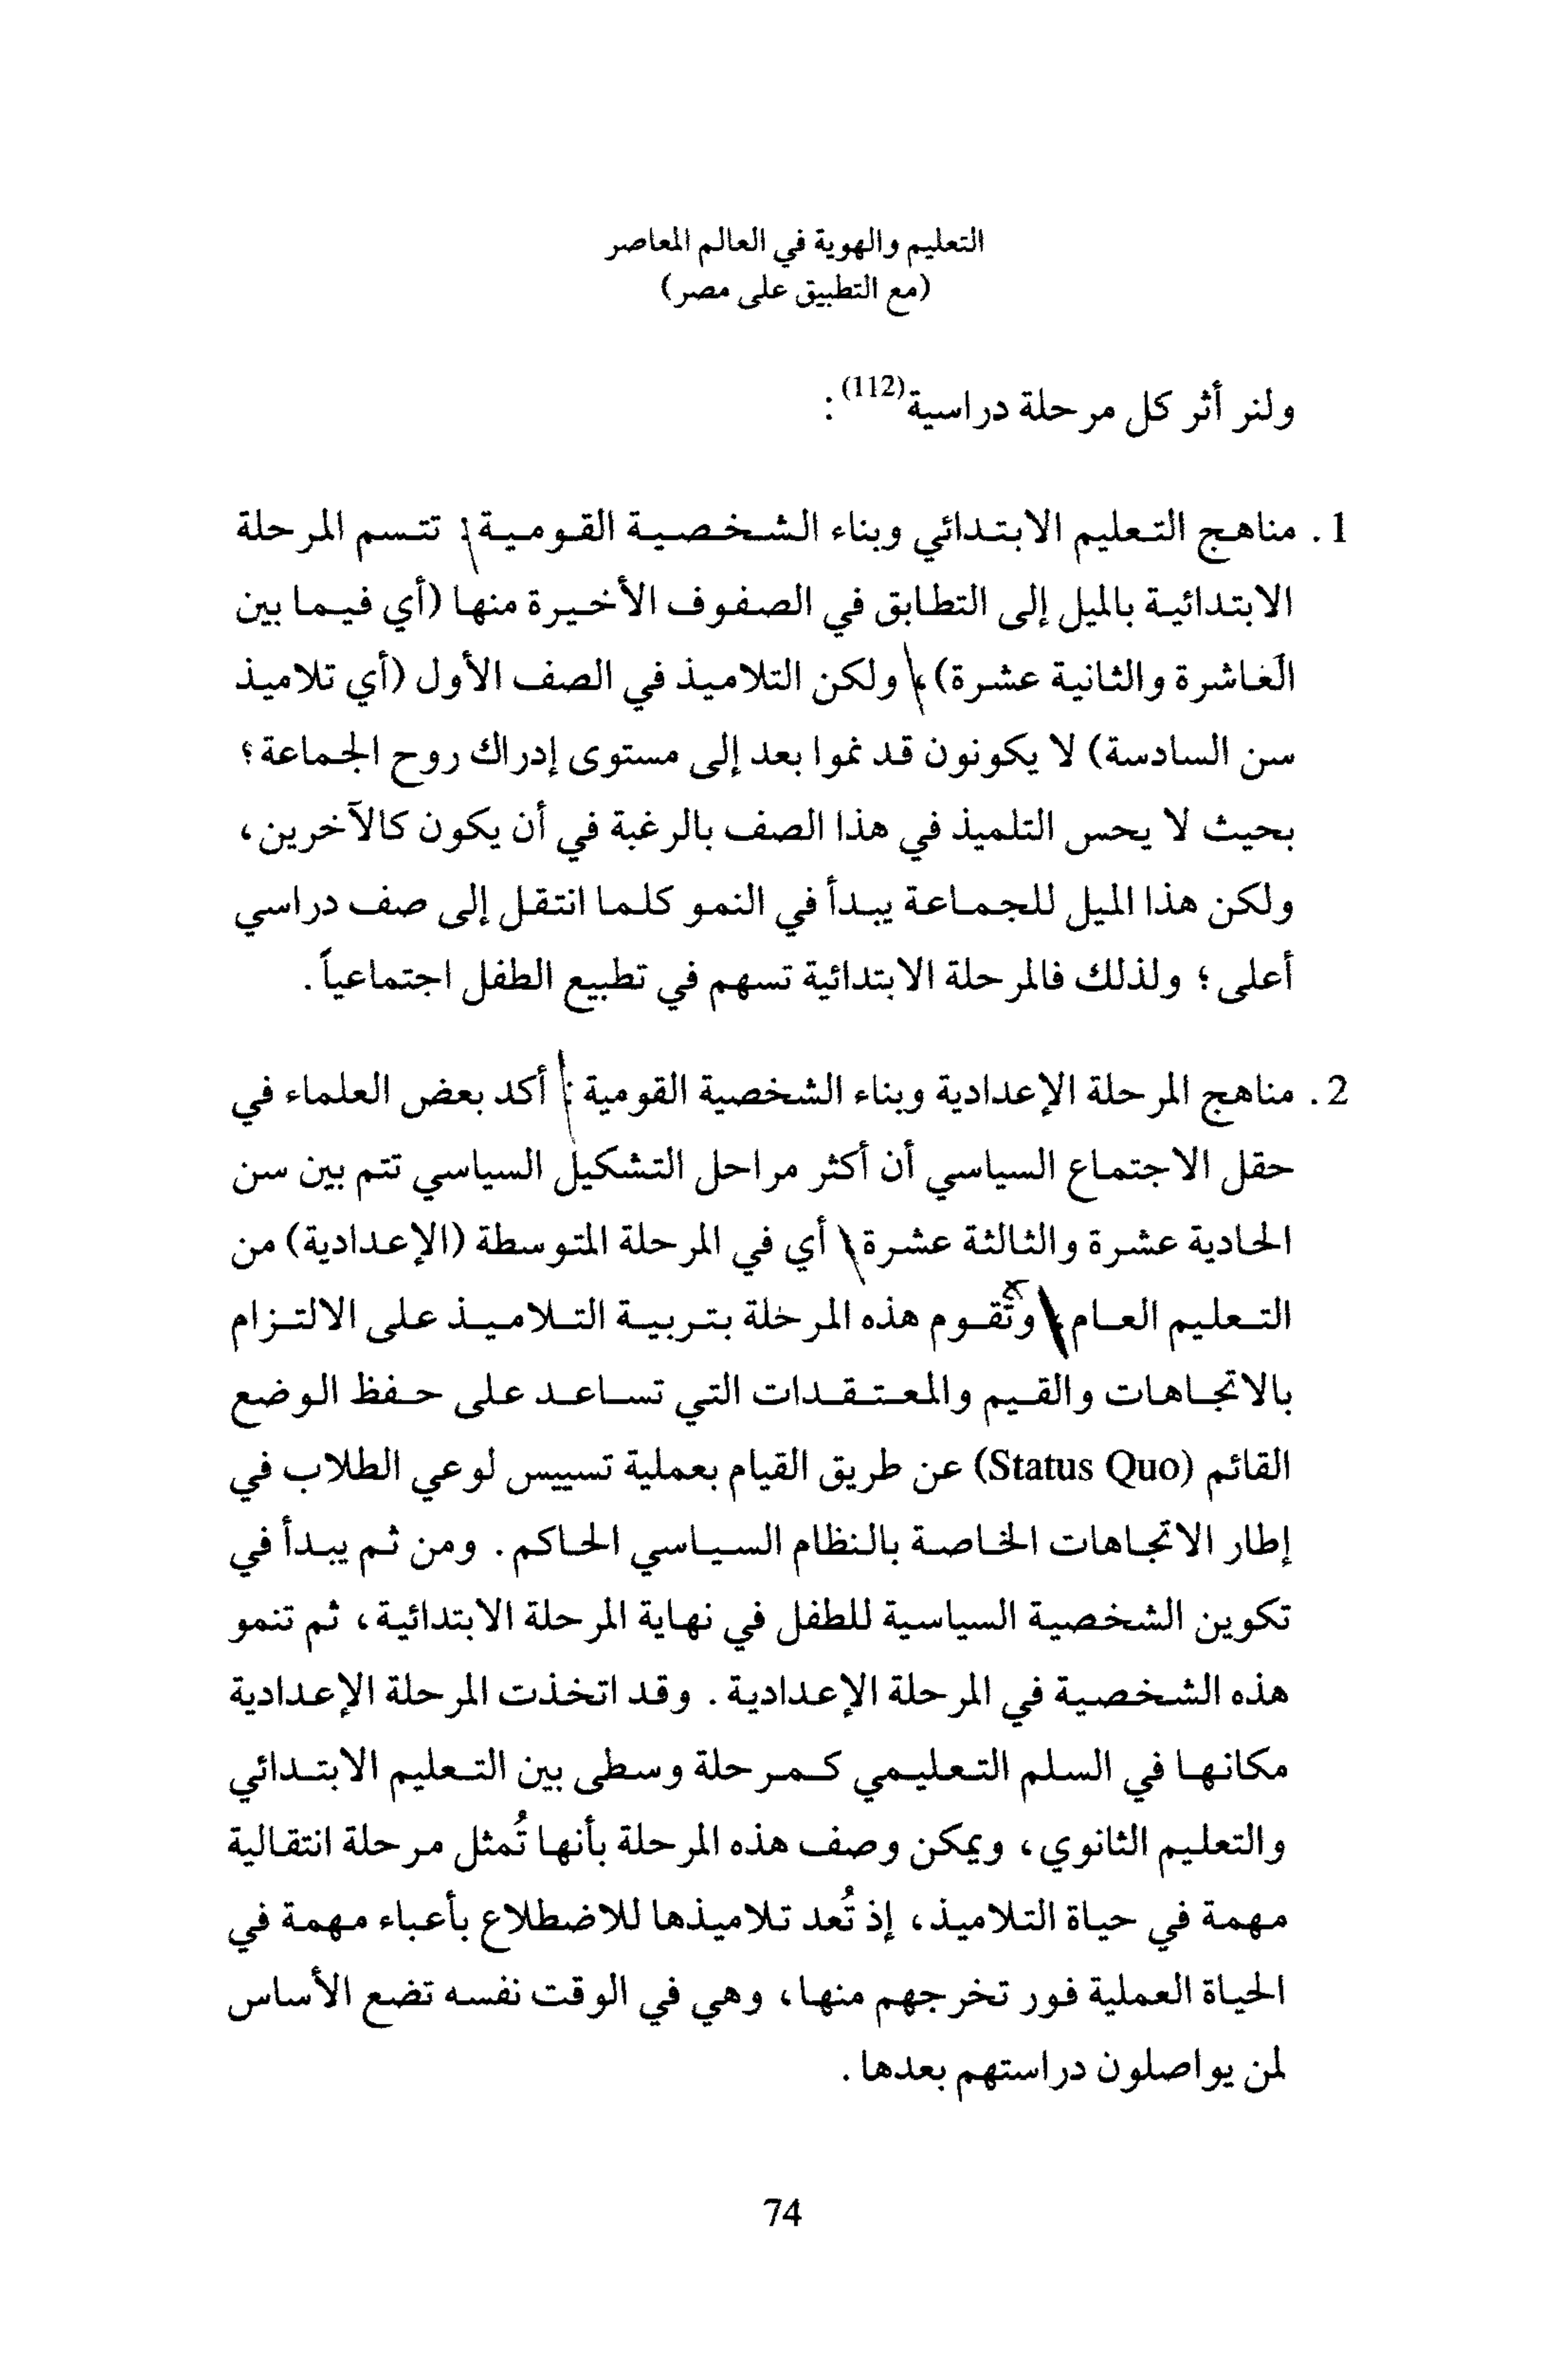 التعليم والهوية في العالم المعاصر
(مع التطبيق على مصر)
ولنر أثر كل مرحلة دراسية(112):
1. مناهج التعليم الابتدائي وبناء الشخصية القومية: تتسم المرحلة
الابتدائية بالميل إلى التطابق في الصفوف الأخيرة منها (أي فيما بين
العاشرة والثانية عشرة)، ولكن التلاميذ في الصف الأول (أي تلاميذ
سن السادسة) لا يكونون قد نموا بعد إلى مستوى إدراك روح الجماعة؛
بحيث لا يحس التلميذ في هذا الصف بالرغبة في أن يكون كالآخرين،
ولكن هذا الميل للجماعة يبدأ في النمو كلما انتقل إلى صف دراسي
أعلى؛ ولذلك فالمرحلة الابتدائية تسهم في تطبيع الطفل اجتماعياً.
2. مناهج المرحلة الإعدادية وبناء الشخصية القومية: أكد بعض العلماء في
حقل الاجتماع السياسي أن أكثر مراحل التشكيل السياسي تتم بين سن
الحادية عشرة والثالثة عشرة أي في المرحلة المتوسطة (الإعدادية) من
التعليم العام، وتقوم هذه المرحلة بتربية التلاميذ على الالتزام
بالاتجاهات والقيم والمعتقدات التي تساعد على حفظ الوضع
القائم (Status Quo) عن طريق القيام بعملية تسييس لوعي الطلاب في
إطار الاتجاهات الخاصة بالنظام السياسي الحاكم. ومن ثم يبدأ في
تكوين الشخصية السياسية للطفل في نهاية المرحلة الابتدائية، ثم تنمو
هذه الشخصية في المرحلة الإعدادية. وقد اتخذت المرحلة الإعدادية
مكانها في السلم التعليمي كمرحلة وسطى بين التعليم الابتدائي
والتعليم الثانوي، ويمكن وصف هذه المرحلة بأنها تُمثل مرحلة انتقالية
مهمة في حياة التلاميذ، إذ تُعد تلاميذها للاضطلاع بأعباء مهمة في
الحياة العملية فور تخرجهم منها، وهي في الوقت نفسه تضع الأساس
لمن يواصلون دراستهم بعدها.
74